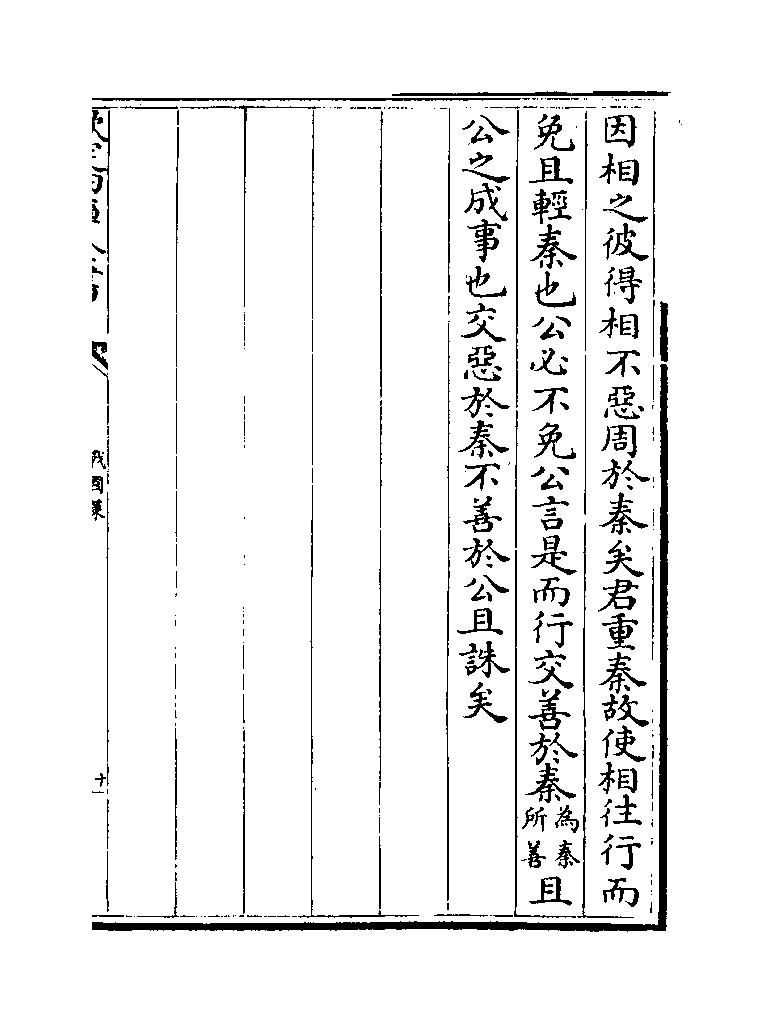 因相之彼得相不惡周於秦矣君重秦故使相往行而
免且輕秦也公必不免公言是而行交善於秦為秦所善且
公之成事也交惡於秦不善於公且誅矣
戰國策
十一